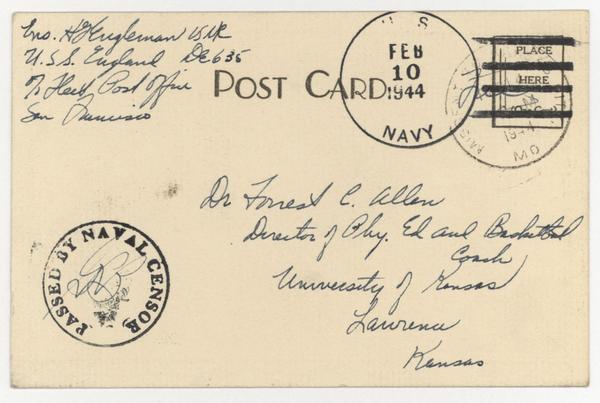 Ens. H Kugleman USNR
U.S.S. England DE635
℅ Fleet Post Office
San Francisco
POST CARD
U. S.
FEB
10
1944
NAVY
PLACE
HERE
1944
MO
Dr Forrest C. Allen
Director of Phy. Ed and Basketball
Coach
University of Kansas
Lawrence
Kansas
PASSED BY NAVAL CENSOR